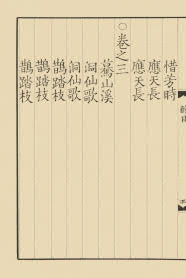 惜芳時
應天長
應天長
○卷之三
驀山溪
洞仙歌
洞仙歌
鵲踏枝
鵲踏枝
鵲踏枝